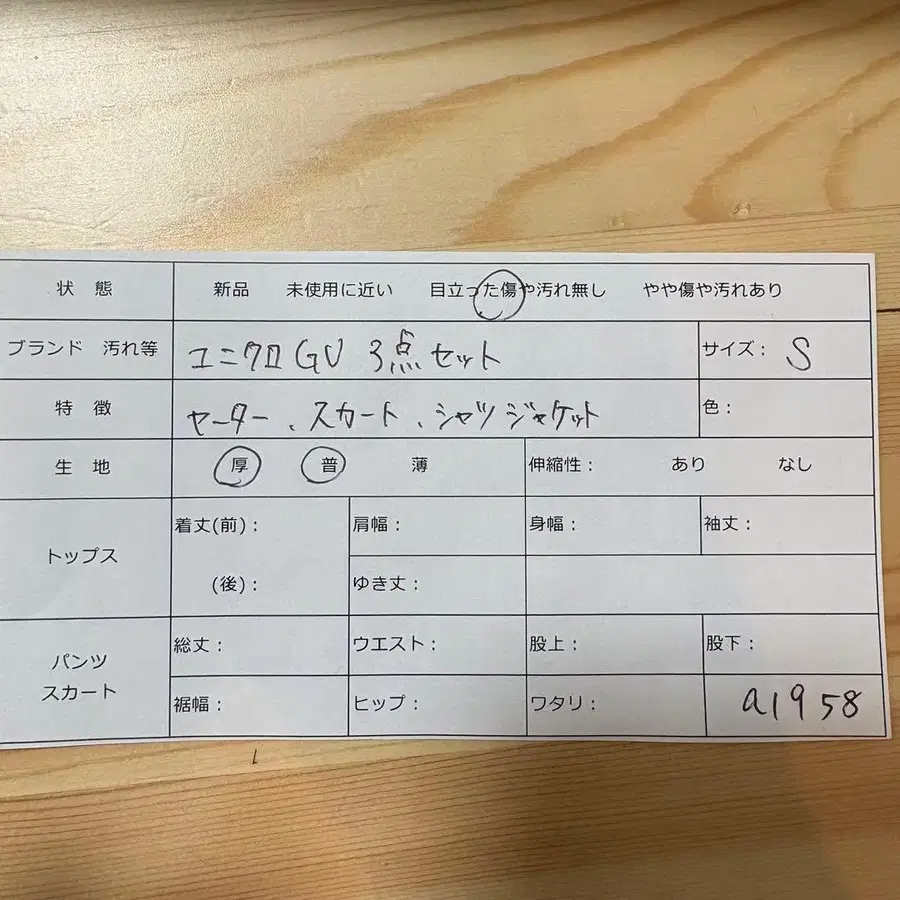 状 態 新品 未使用に近い 目立った傷や汚れ無し やや傷や汚れあり
ブランド 汚れ等 ユニクロGU 3点セット サイズ: S
特 徴 セーター、スカート、シャツジャケット 色:
生 地 厚 普 薄 伸縮性: あり なし
トップス 着丈(前): 肩幅: 身幅: 袖丈:
(後): ゆき丈:
パンツ スカート 総丈: ウエスト: 股上: 股下:
裾幅: ヒップ: ワタリ: a1958